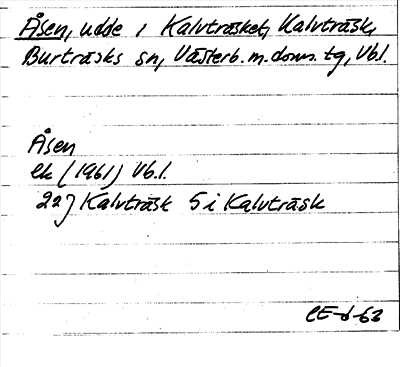 Åsen, udde i Kalvträsket, Kalvträsk,
Burträsks sn, Västerb. m. doms. tg, Vbl.
Åsen
ek (1961) Vb.l.
22J Kalvträsk 5 i Kalvträsk
CE-6-63